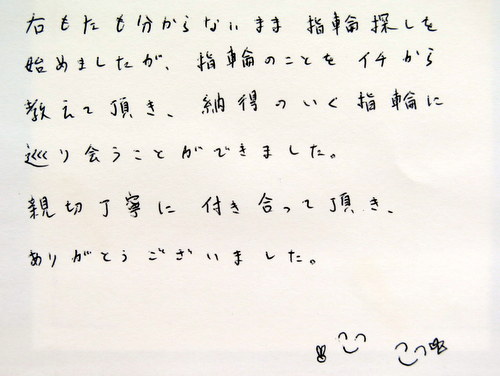 右もたも分からないまま 指輪探しを
始めましたが、指輪のことを イチから
教えて頂き、納得のいく指輪に
巡り会うことができました。
親切丁寧に 付き合って頂き、
ありがとうございました。